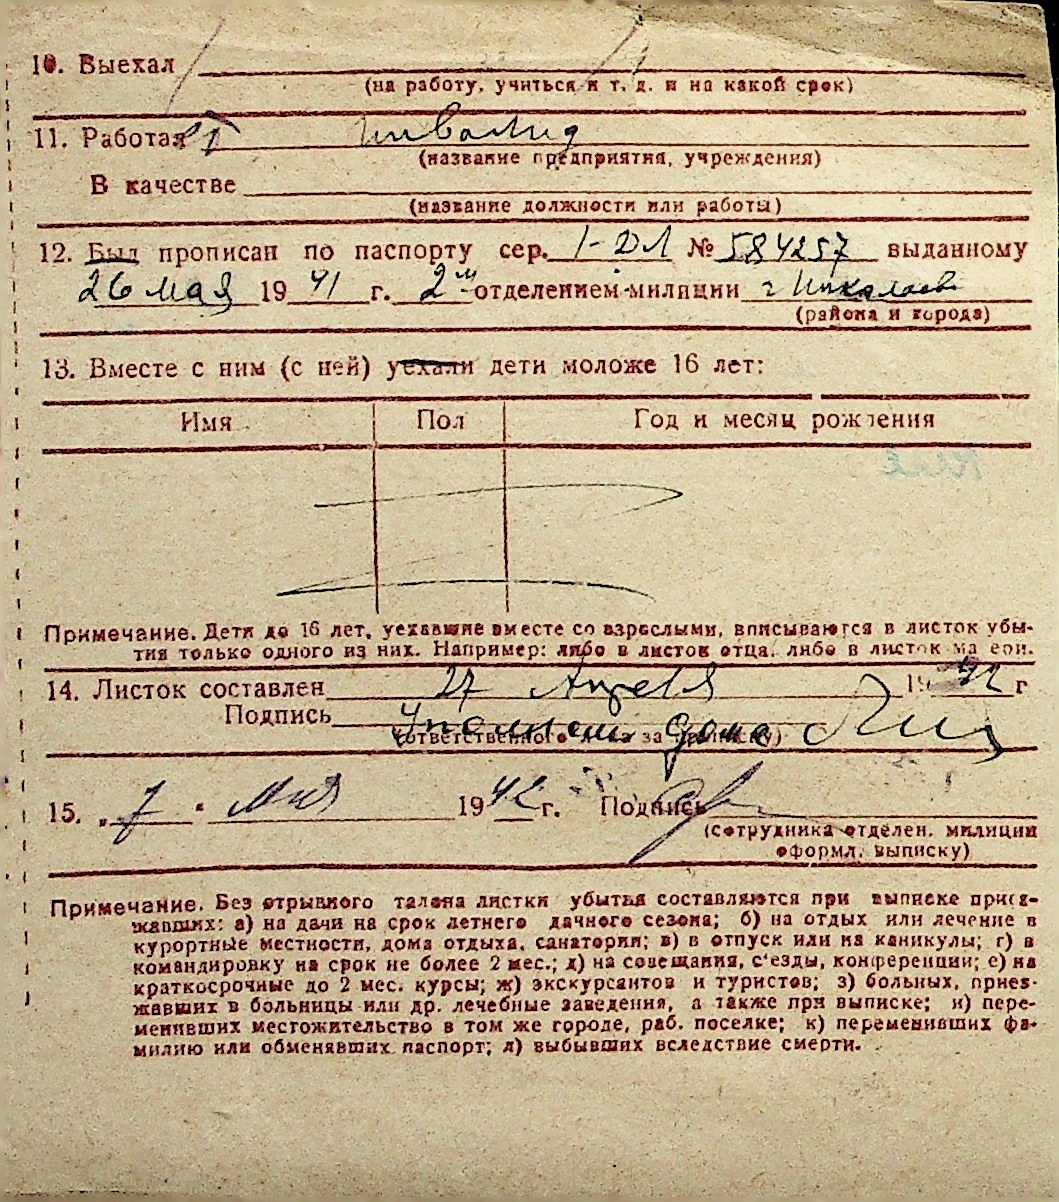 10. Выехал
(на работу, учиться и т. д. и на какой срок)
11. Работал инвалид
(название предприятия, учреждения)
В качестве
(название должности или работы)
12. Был прописан по паспорту сер. 1-ДЛ № 584257 выданному
26 мая 1941 г. 2 м отделением милиции г Николаев
(района и города)
13. Вместе с ним (с ней) уехали дети моложе 16 лет:
Имя Пол Год и месяц рождения
Примечание. Дети до 16 лет, уехавшие вместе со взрослыми, вписываются в листок убы-
тия только одного из них. Например: либо в листок отца, либо в листок матери.
14. Листок составлен 27 Апреля 1942 г
Подпись дома
(ответственного лица за прописку)
15. „7" Мая 1942 г. Подпись
(сотрудника отделен. милиции
оформл. выписку)
Примечание. Без отрывного талона листки убытья составляются при выписке приез-
жавших: а) на дачи на срок летнего дачного сезона; б) на отдых или лечение в
курортные местности, дома отдыха, санатории; в) в отпуск или на каникулы; г) в
командировку на срок не более 2 мес.; д) на совещания, с'езды, конференции; е) на
краткосрочные до 2 мес. курсы; ж) экскурсантов и туристов; з) больных, приез-
жавших в больницы или др. лечебные заведения, а также при выписке; и) пере-
менивших местожительство в том же городе, раб. поселке; к) переменивших фа-
милию или обменявших паспорт; л) выбывших вследствие смерти.